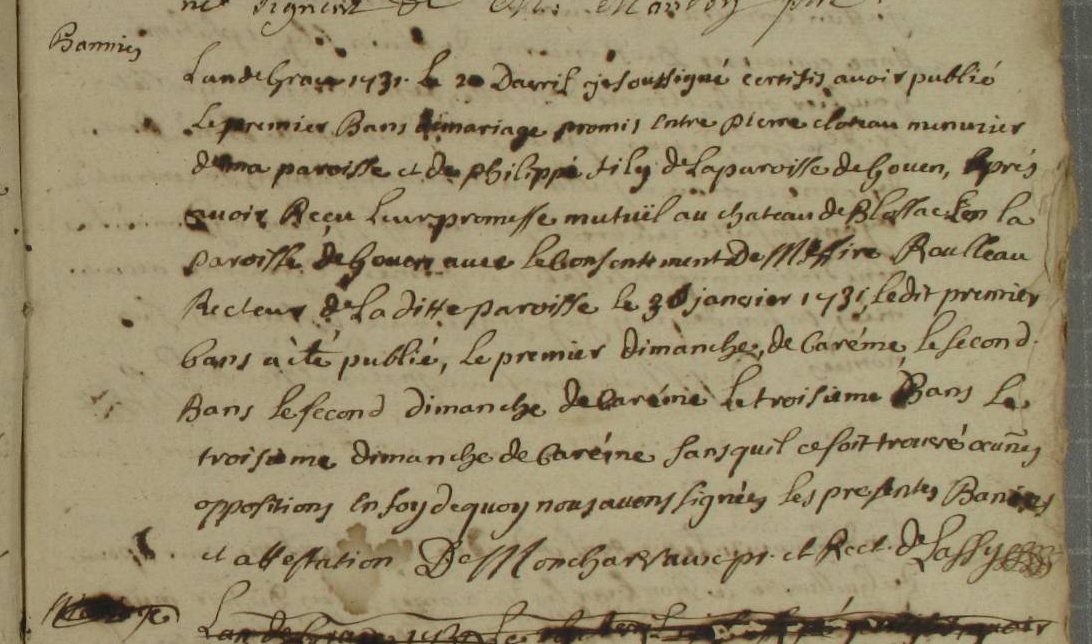 ne signent de
Bannies
Lan de Grace 1731 le 20 Davril je soussigné certifis avoir publié
Le premier Bans de mariage promis Entre pierre cloteau menuzier
de ma paroisse et de philippé tily de La paroisse de Goven, Aprés
avoir Reçeu leur promesse mutuël au chateau de Blossac En la
paroisse de Goven avec le Consentement De Messire Raulleau
Recteur de La ditte paroisse le janvier 1731, le dit premier
bans a ête publié, Le premier dimanche de Caréme, le second
Bans le second dimanche de Caréme Le troisieme Bans Le
troisieme dimanche de Caréme sans quil ce soit trouvé
oppositions En foy de quoy nous avons signées les presentes Banies
et attestation De Moncharvaux pr. et Rect. de Lassy
Lan de Grace